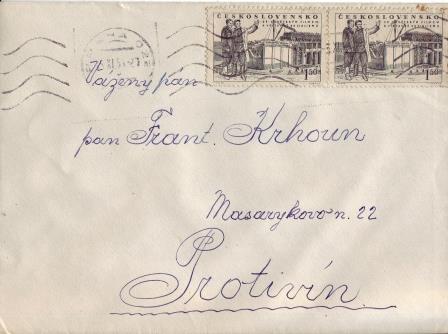 ČESKOSLOVENSKO ČESKOSLOVENSKO
1.50 1.50
Vážený pán
pan Frant. Krhoun
Masarykovo n. 22
Protivín